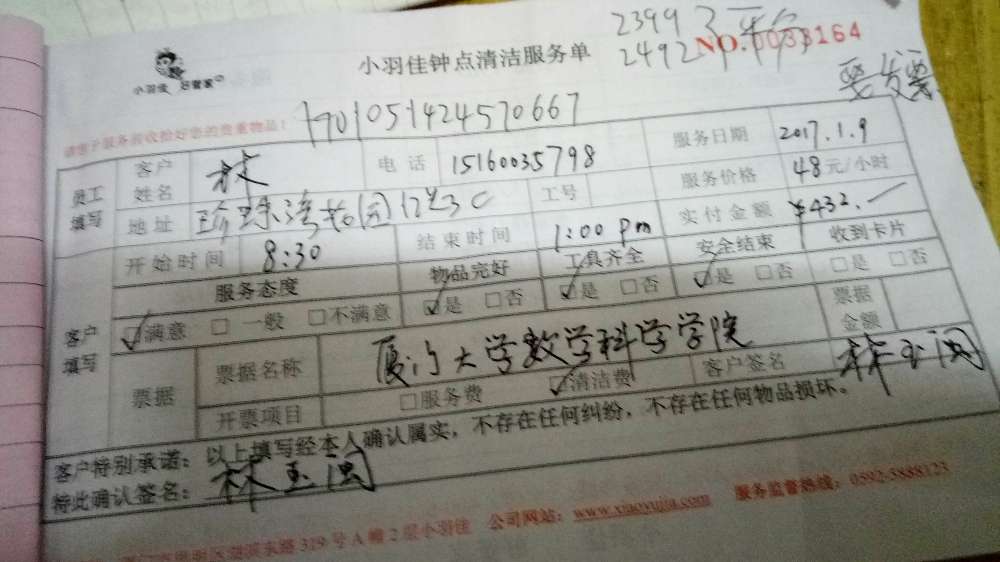 2399
2492
小羽佳 好管家
小羽佳钟点清洁服务单
NO.0038164
要发票
请您于服务前收拾好您的贵重物品!
1701051424570667
员工填写
客户姓名 林 电话 15160035798 服务日期 2017.1.9
地址 珍珠湾花园 3C 工号 服务价格 48元/小时
开始时间 8:30 结束时间 1:00 pm 实付金额 ¥432.
客户填写
服务态度 物品完好 工具齐全 安全结束 收到卡片
☑满意 □一般 □不满意 ☑是 □否 ☑是 □否 ☑是 □否 □是 □否
票据 票据名称 厦门大学数学科学学院 票据金额
开票项目 □服务费 ☑清洁费 客户签名 林玉闽
客户特别承诺:以上填写经本人确认属实,不存在任何纠纷,不存在任何物品损坏。
特此确认签名:林玉闽
东路319号A幢2层小羽佳 公司网站:www.xiaoyujia.com 服务监督热线:0592-5888123